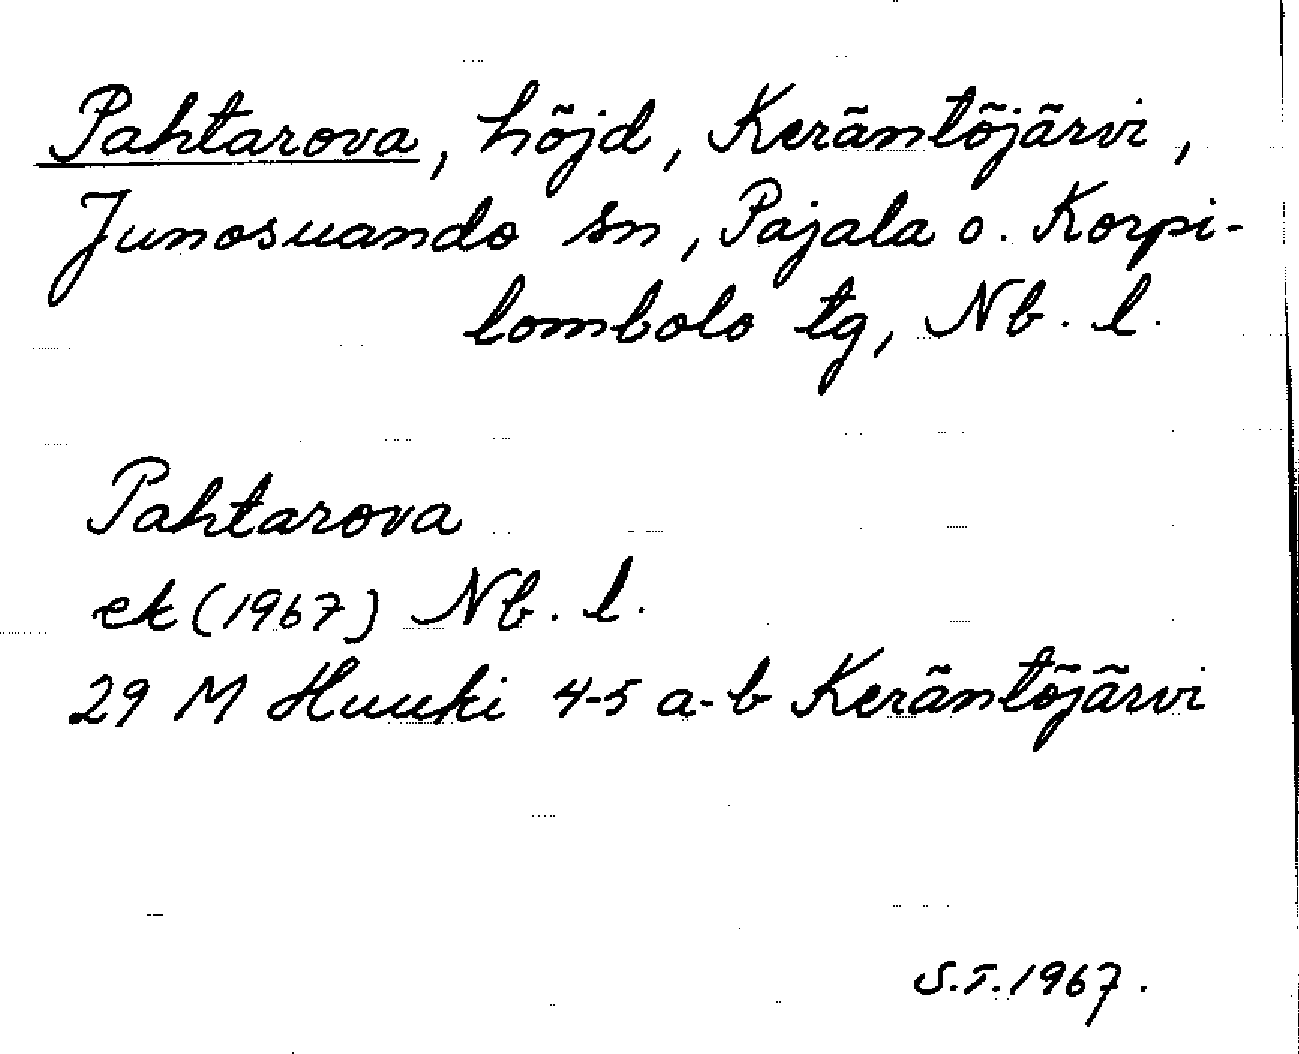 Pahtarova, höjd, Keräntöjärvi,
Junosuando sn, Pajala o. Korpi-
lombolo tg, Nb. l.
Pahtarova
ek (1967) Nb. l.
29 M Huuki 4-5 a-b Keräntöjärvi
S.T. 1967.